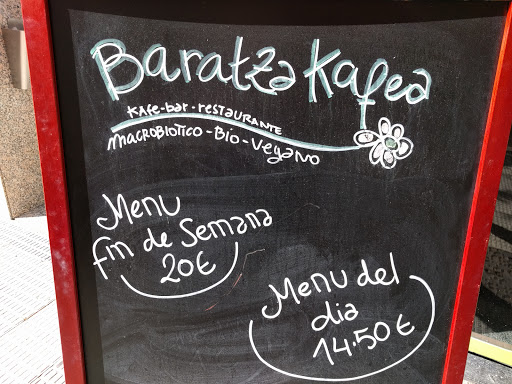 Baratza Kafea
Kafe-bar-restaurante
macrobiotico-Bio-Vegano
Menu
fin de Semana
20€
Menu del
dia
14.50€